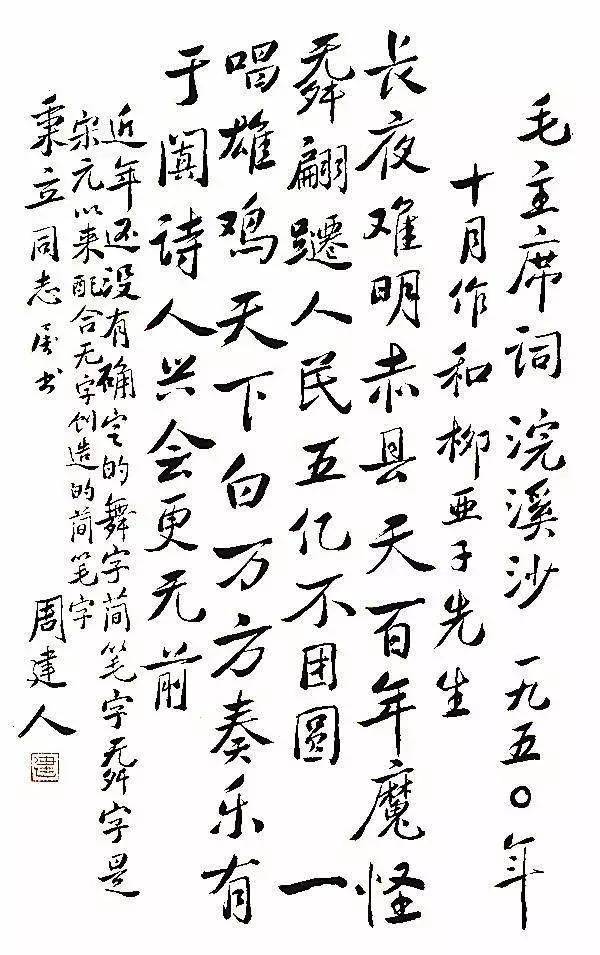 毛主席词 浣溪沙 一九五〇年
十月作和柳亚子先生
长夜难明赤县天百年魔怪
翩躚人民五亿不团圆一
唱雄鸡天下白万方奏乐有
于阗诗人兴会更无前
近年还没有确定的舞字简笔字字是
宋元以来配合无字创造的简笔字
秉立同志属书 周建人